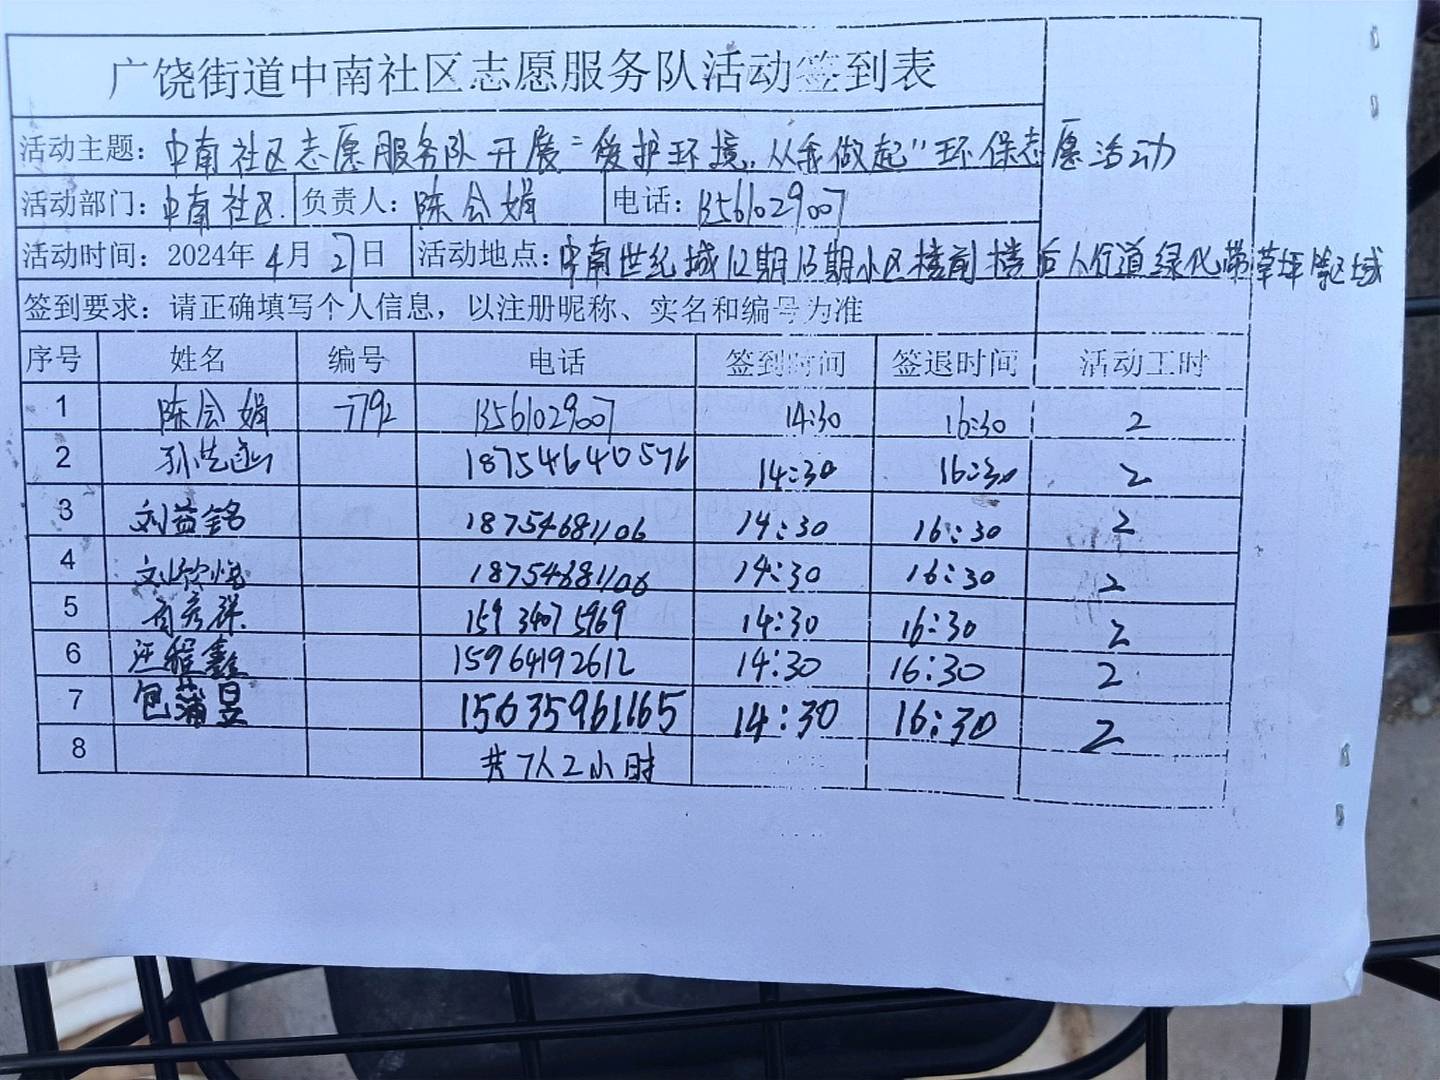 广饶街道中南社区志愿服务队活动签到表
活动主题：中南社区志愿服务队开展“爱护环境，从我做起”环保志愿活动
活动部门：中南社区 负责人：陈会娟 电话：13561029007
活动时间：2024年4月27日 活动地点：中南世纪城12期13期小区楼前楼后人行道绿化带草坪等区域
签到要求：请正确填写个人信息，以注册昵称、实名和编号为准
序号 姓名 编号 电话 签到时间 签退时间 活动工时
1 陈会娟 7792 13561029007 14:30 16:30 2
2 18754640576 14:30 16:30 2
3 刘益铭 18754681106 14:30 16:30 2
4 18754681106 14:30 16:30 2
5 15934075969 14:30 16:30 2
6 汪程鑫 15964192612 14:30 16:30 2
7 包蒲昱 15635961165 14:30 16:30 2
8 共7人2小时